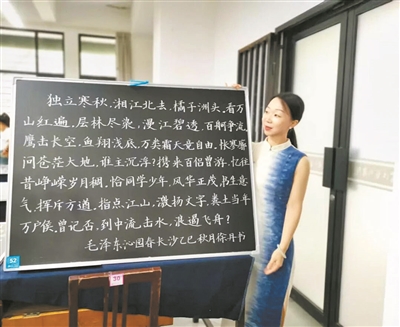 独立寒秋,湘江北去,橘子洲头.看万
山红遍,层林尽染,漫江碧透,百舸争流,
鹰击长空,鱼翔浅底,万类霜天竞自由.怅寥廓
问苍茫大地,谁主沉浮?携来百侣曾游,忆往
昔峥嵘岁月稠.恰同学少年,风华正茂,书生意
气,挥斥方遒.指点江山,激扬文字,粪土当年
万户侯.曾记否,到中流击水,浪遏飞舟?
毛泽东沁园春长沙乙巳秋月徐丹书
52